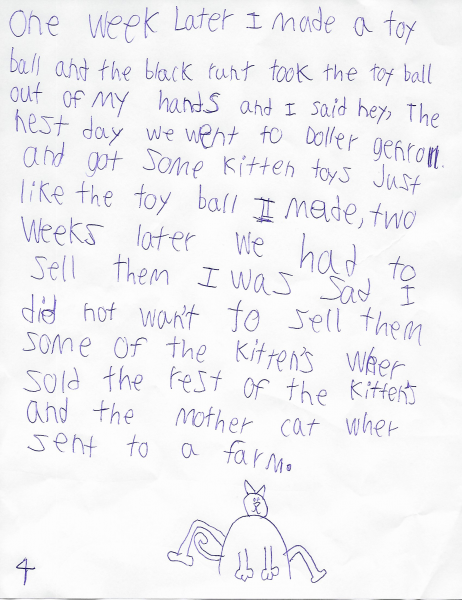 One week Later I made a toy
ball and the black runt took the toy ball
out of my hands and I said hey, The
nest day we went to Doller genron.
and got some kitten toys Just
like the toy ball I made, two
weeks later we had to
sell them I was sad I
did not wan't to sell them
some of the kitten's wher
sold the rest of the kitten's
and the mother cat wher
sent to a farm.
4